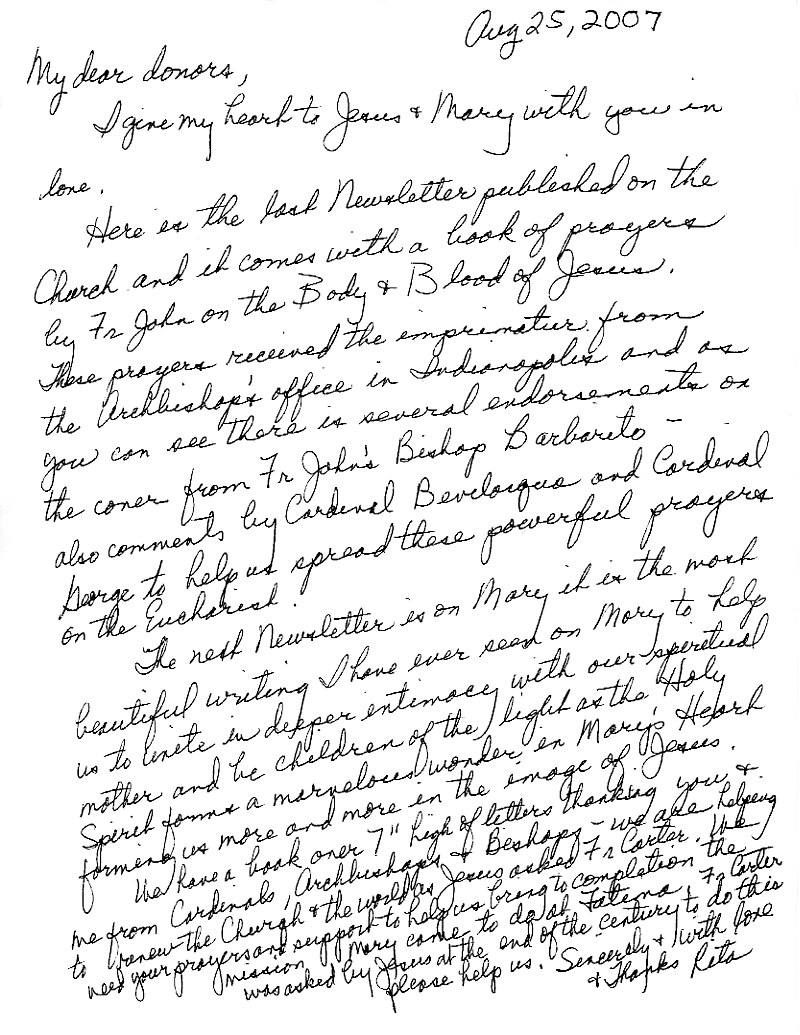 Aug 25, 2007
My dear donors,
I give my heart to Jesus & Mary with you in
love.
Here is the last Newsletter published on the
Church and it comes with a book of prayers
by Fr John on the Body & Blood of Jesus.
These prayers received the imprimatur from
the Archbishop's office in Indianapolis and as
you can see there is several endorsements on
the cover from Fr John's Bishop Barbarito -
also comments by Cardinal Bevilacqua and Cardinal
George to help us spread these powerful prayers
on the Eucharist.
The next Newsletter is on Mary it is the most
beautiful writing I have ever seen on Mary to help
us to unite in deeper intimacy with our spiritual
mother and be children of the light as the Holy
Spirit forms a marvelous wonder in Mary's Heart
forming us more and more in the image of Jesus.
We have a book over 7" high of letters thanking you &
me from Cardinals, Archbishops & Bishops - we are helping
to renew the Church & the world as Jesus asked Fr Carter. We
need your prayers and support to help us bring to completion the
mission Mary came to do at Fatima. Fr Carter
was asked by Jesus at the end of the century to do this
please help us. Sincerely & with love
& Thanks Rita